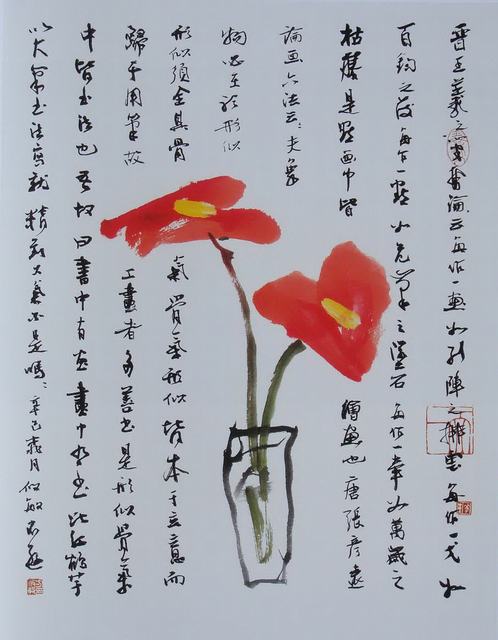 晋王羲之書論云每作一畫如列陣之排雲每作一戈如
百鈞之發每作一點如危峯之墜石每作一牽如萬歲之
枯藤是點画中皆繪畫也唐張彥遠
論画六法云夫象
物必至於形似
形似須全其骨氣骨氣形似皆本于立意而
歸乎用筆故工畫者多善書是形似骨氣
中皆书法也吾故曰書中有画畫中有书此红鹤芋
以大筆书法寫就精大氣不是嗎辛巳月似敏